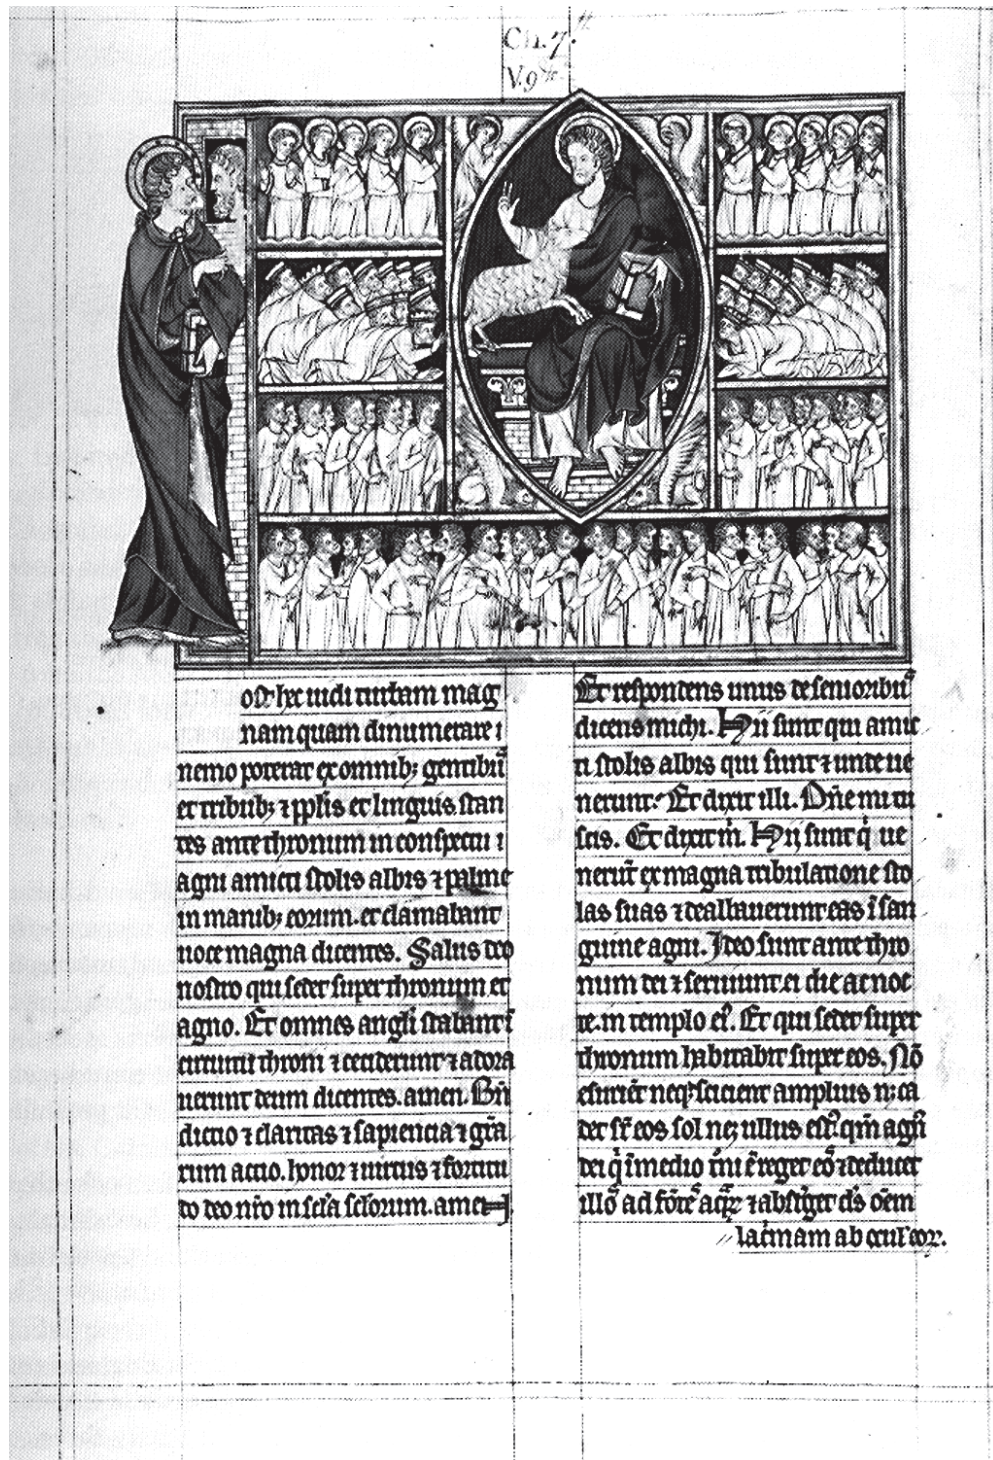 Ch. 7.
V. 9
ost hec uidi turbam mag
nam quam dinumerare
nemo poterat ex omnib; gentibꝰ
et tribub; ⁊ pp̄lis et linguis stan
tes ante thronum in conspectu
agni amicti stolis albis ⁊ palme
in manib; eorum. et clamabant
uoce magna dicentes. Salus deo
nostro qui sedet super thronum et
agno. Et omnes angl̄i stabant ī
circuitu throni ⁊ ceciderunt ⁊ adora
uerunt deum dicentes. amen. Bn̄
dictio ⁊ claritas ⁊ sapiencia ⁊ gr̄a
rum actio. honor ⁊ uirtus ⁊ fortitu
do deo nr̄o in sc̄la sc̄lorum. amen
Et respondens unus de senioribꝰ
dicens michi. Hii sunt qui amic
ti stolis albis qui sunt ⁊ unde ue
nerunt. Et dixit illi. Dn̄e mi tu
scis. Et dixit m̍. Hij sunt q̍ ue
nerūt ex magna tribulatione sto
las suas ⁊ dealbauerunt eas ī san
guine agni. Ideo sunt ante thro
num dei ⁊ seruiunt ei die ac noc
te in templo eꝰ. Et qui sedet super
thronum habitabit super eos. Nō
esurient neq; scicient amplius n; ca
det sr̄ eos sol neq; ullus estꝰ qm̄ agnꝰ
dei q̍ ī medio reget eos ⁊ deducet
illos ad fōtē aq̄ꝝ ⁊ absterget ds̄ om̄em
lac̍mam ab ocul̍ eoꝝ.